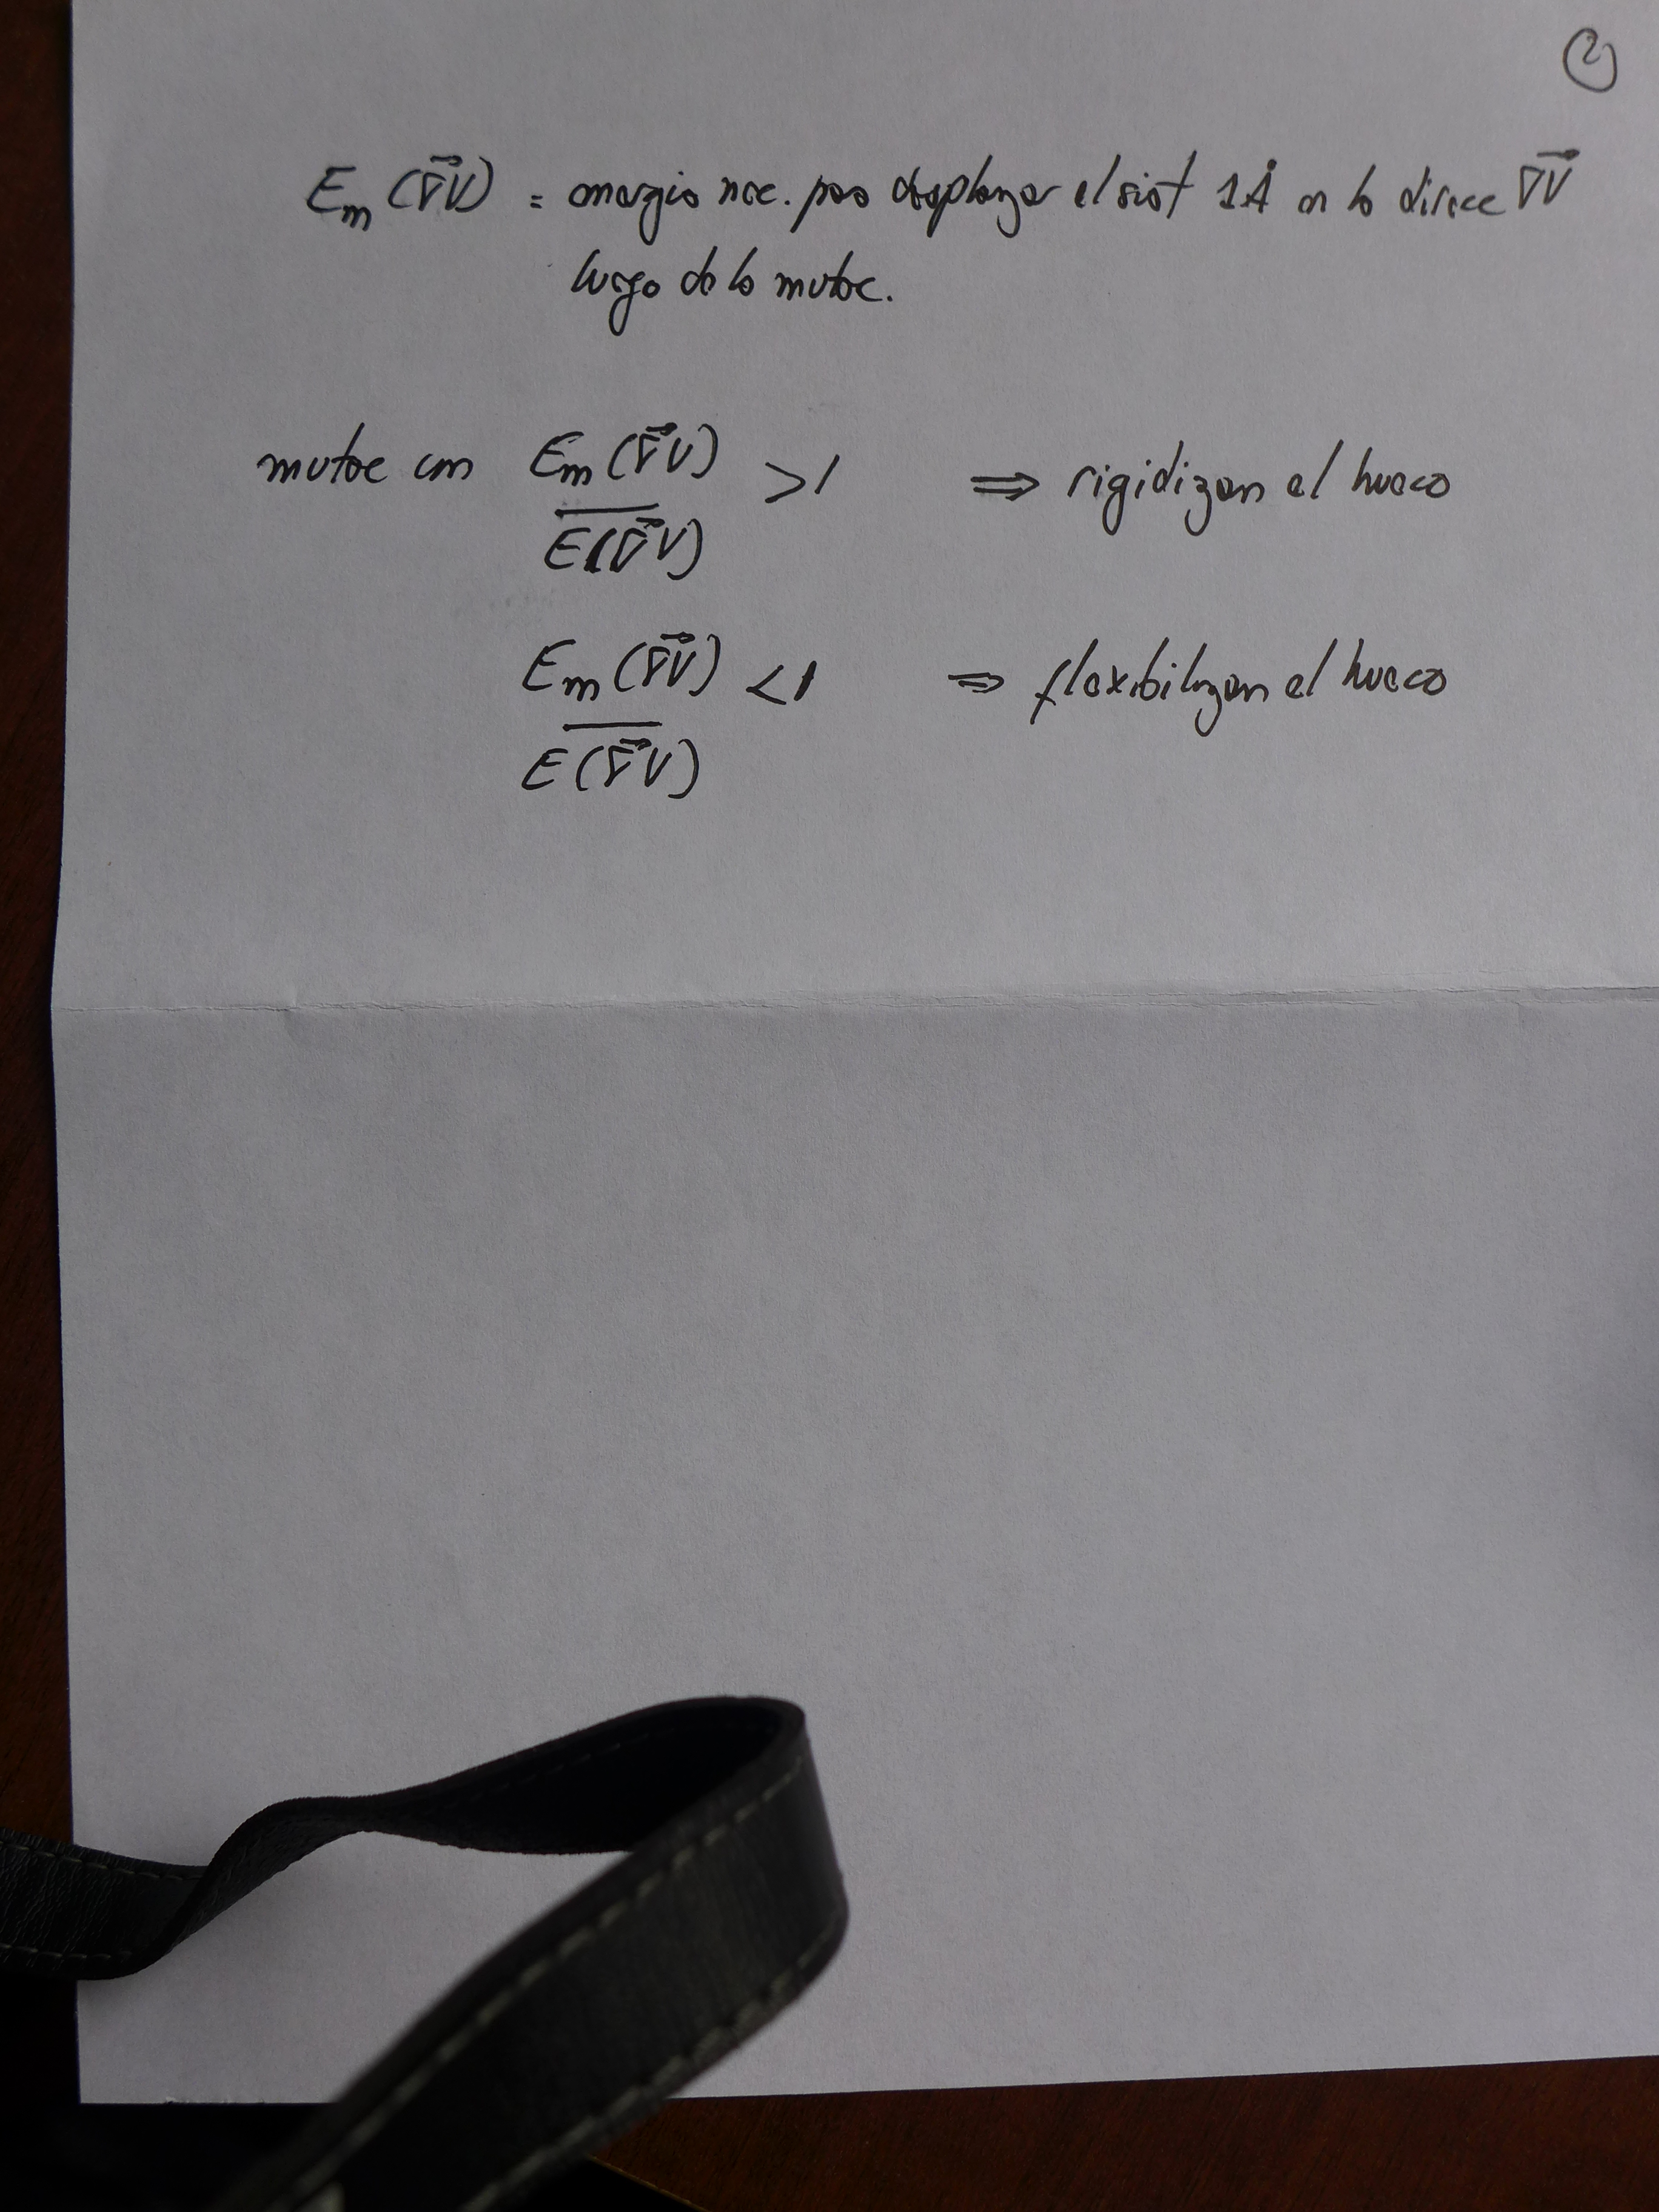 2
Em (∇V) = energia nec. para desplazar el sist 1Å en la direcc ∇V
luego de la mutac.
mutac con Em (∇V) / E(∇V) >1 ⇒ rigidizan el hueco
Em (∇V) / E(∇V) <1 ⇒ flexibilizan el hueco